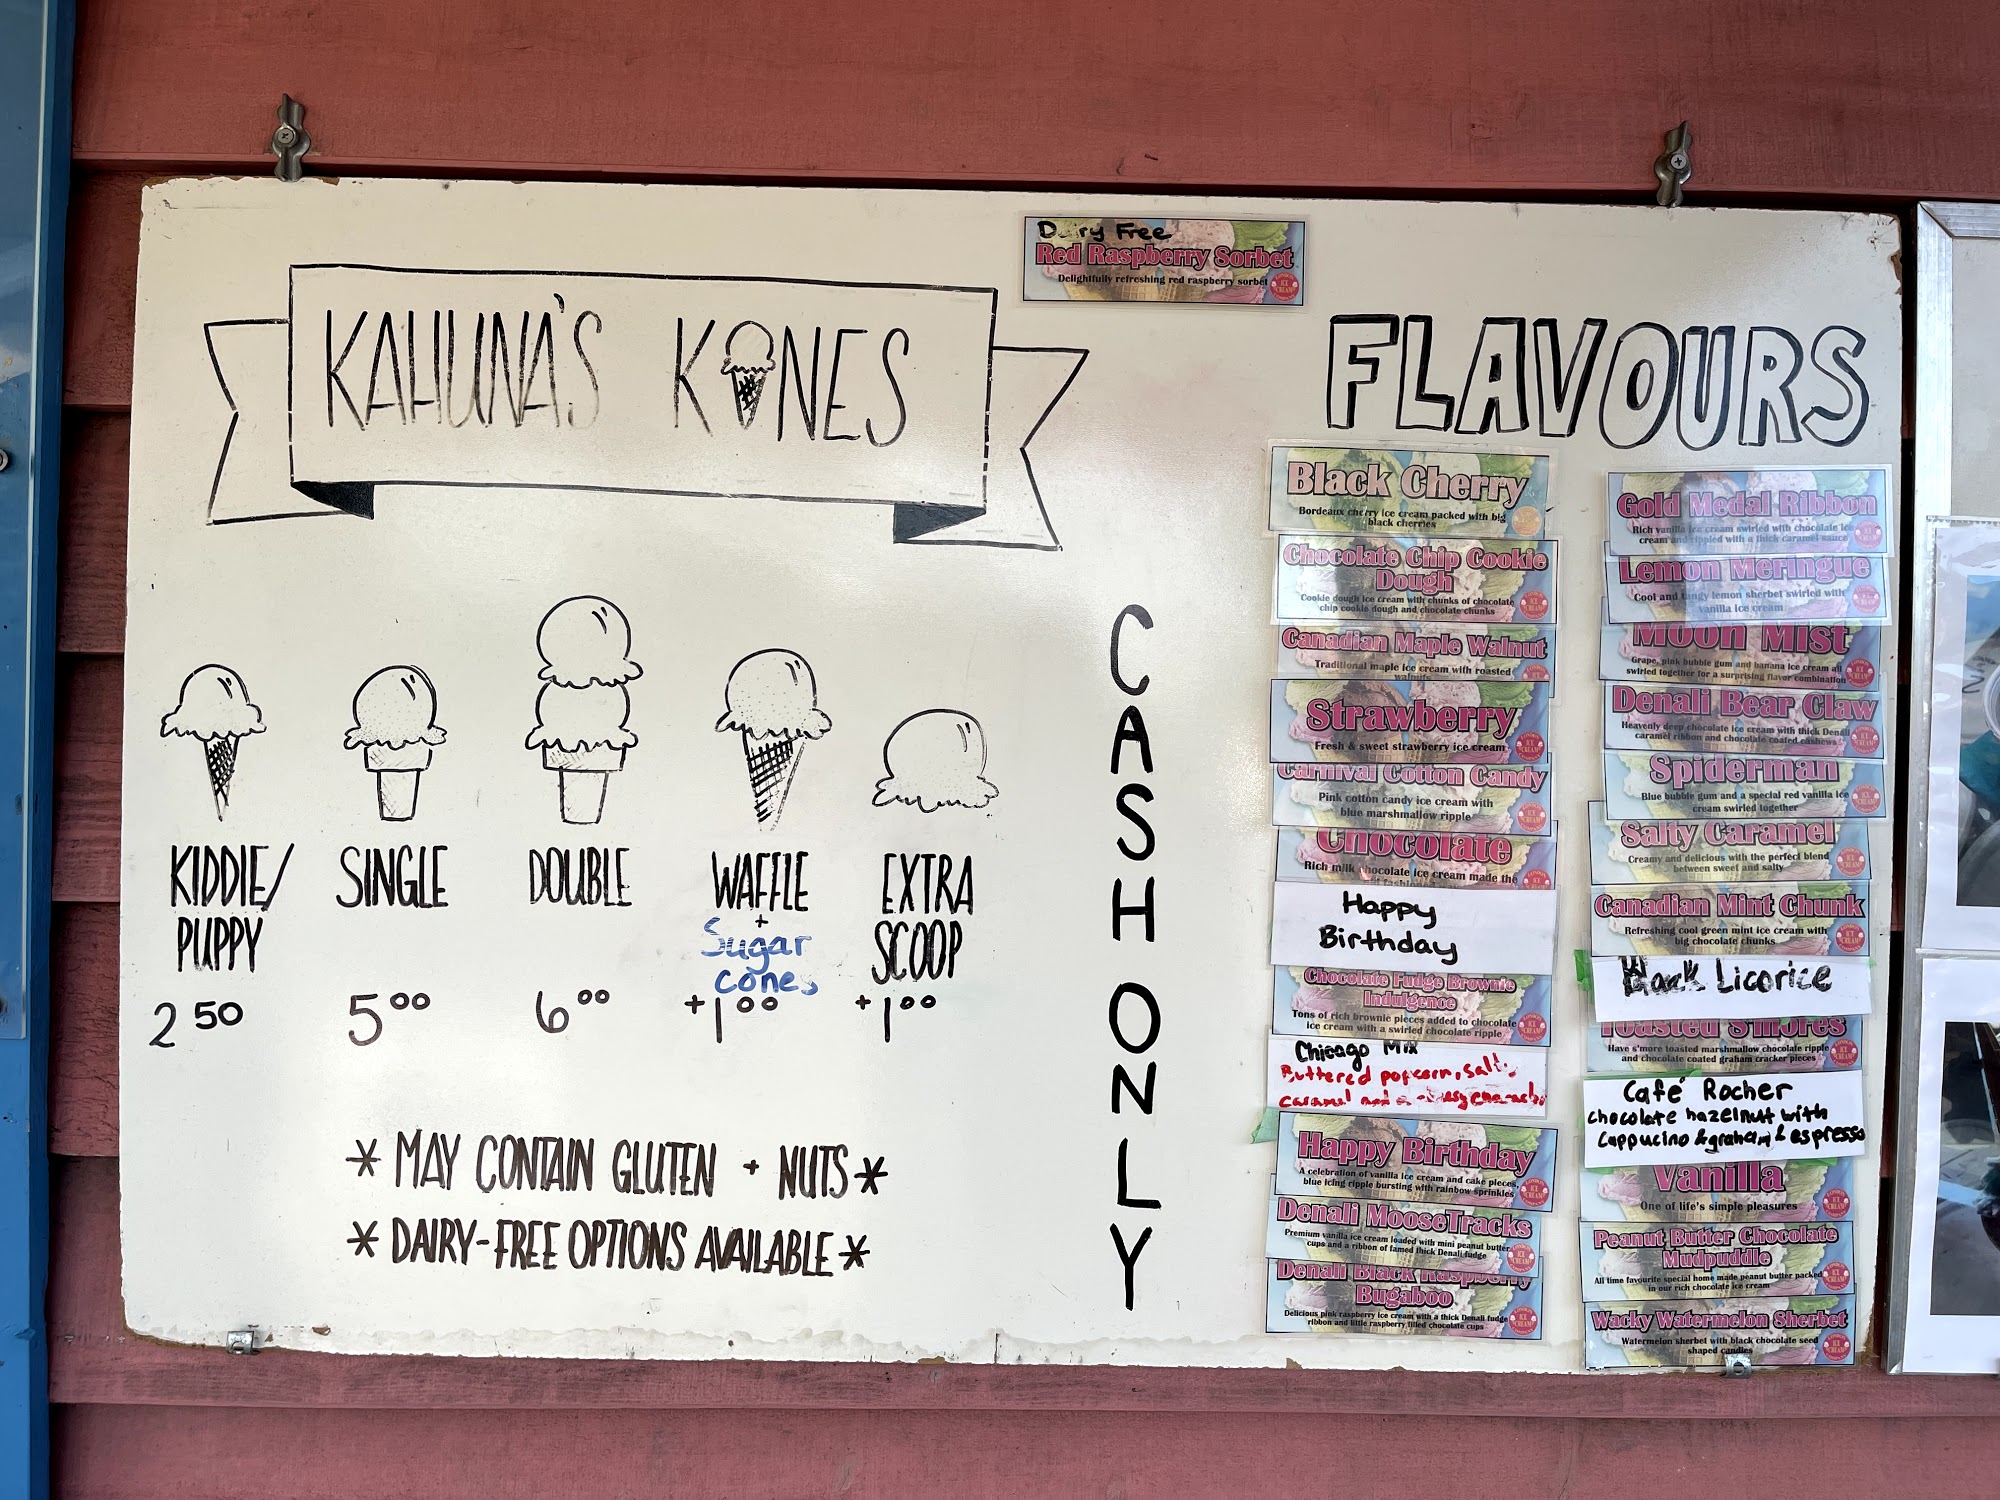 Dairy Free
Red Raspberry Sorbet
Delightfully refreshing red raspberry sorbet
KAHUNA'S KONES
KIDDIE/
PUPPY
2 50
SINGLE
5 00
DOUBLE
6 00
WAFFLE
+
Sugar
cones
+1 00
EXTRA
SCOOP
+1 00
* MAY CONTAIN GLUTEN + NUTS *
* DAIRY-FREE OPTIONS AVAILABLE *
CASH ONLY
FLAVOURS
Black Cherry
Bordeaux cherry ice cream packed with big
black cherries
Chocolate Chip Cookie
Dough
Cookie dough ice cream with chunks of chocolate
chip cookie dough and chocolate chunks
Canadian Maple Walnut
Traditional maple ice cream with roasted
walnuts
Strawberry
Fresh & sweet strawberry ice cream
Carnival Cotton Candy
Pink cotton candy ice cream with
blue marshmallow ripple
Chocolate
Rich milk chocolate ice cream made the
Happy
Birthday
Chocolate Fudge Brownie
Indulgence
Tons of rich brownie pieces added to chocolate
ice cream with a swirled chocolate ripple
Chicago Mix
Buttered popcorn, salty
caramel
Happy Birthday
A celebration of vanilla ice cream and cake pieces,
blue icing ripple bursting with rainbow sprinkles
Denali MooseTracks
Premium vanilla ice cream loaded with mini peanut butter
cups and a ribbon of famed thick Denali fudge
Denali Black Raspberry
Bugaboo
Delicious pink raspberry ice cream with a thick Denali fudge
ribbon and little raspberry filled chocolate cups
Gold Medal Ribbon
Rich vanilla ice cream swirled with chocolate ice
cream and rippled with a thick caramel sauce
Lemon Meringue
Cool and tangy lemon sherbet swirled with
vanilla ice cream
Moon Mist
Grape, pink bubble gum and banana ice cream all
swirled together for a surprising flavor combination
Denali Bear Claw
Heavenly deep chocolate ice cream with thick Denali
caramel ribbon and chocolate coated cashews
Spiderman
Blue bubble gum and a special red vanilla ice
cream swirled together
Salty Caramel
Creamy and delicious with the perfect blend
between sweet and salty
Canadian Mint Chunk
Refreshing cool green mint ice cream with
big chocolate chunks
Black Licorice
Toasted S'mores
Have s'more toasted marshmallow chocolate ripple
and chocolate coated graham cracker pieces
Café Rocher
chocolate hazelnutt with
Cappucino & graham & espresso
Vanilla
One of life's simple pleasures
Peanut Butter Chocolate
Mudpuddle
All time favourite special home made peanut butter packed
in our rich chocolate ice cream
Wacky Watermelon Sherbet
Watermelon sherbet with black chocolate seed
shaped candies